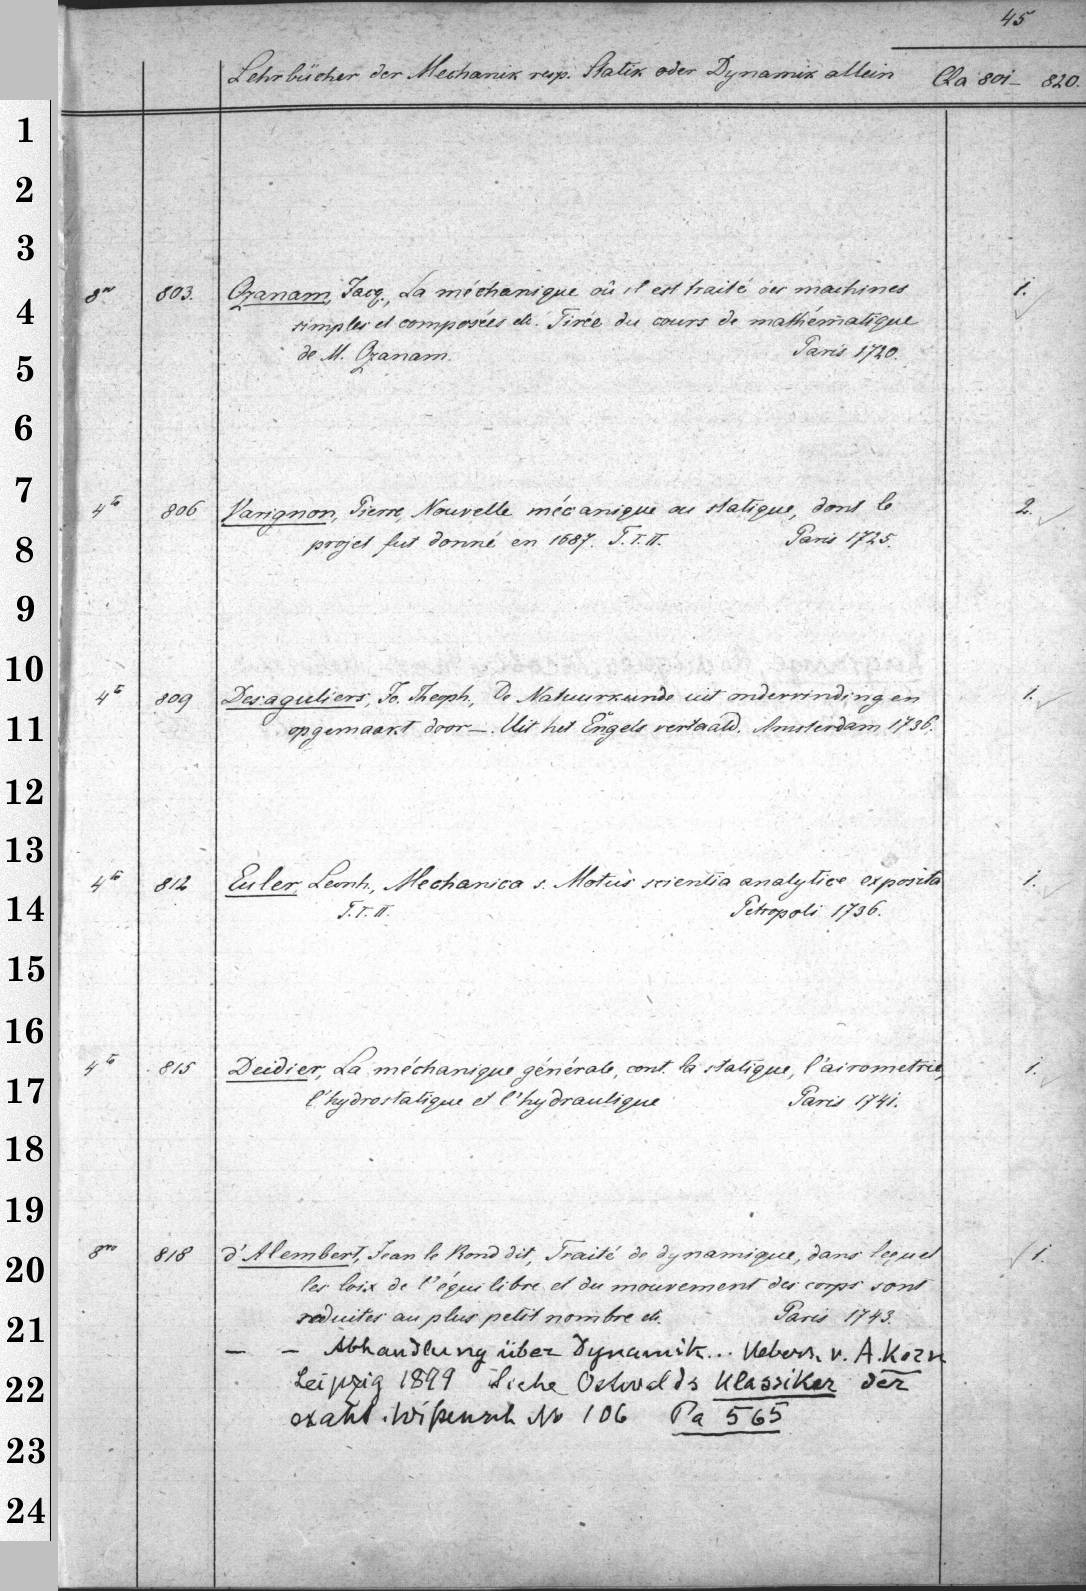 45
Lehrbücher der Mechanik resp. Statik oder Dynamik allein Qa 801– 820.
1
2
3
8vo 803. Ozanam, Jacq., La méchanique où il est traité des machines 1.
4
simples et composées etc. Tirée du cours de mathématique
de M. Ozanam. Paris 1720.
5
6
7
4to 806 Varignon, Pierre, Nouvelle mécanique ou statique, dont le 2.
projet fut donné en 1687. T. I. II. Paris 1725.
8
9
10
4to 809 Desaguliers, Jo. Theoph., De Natuurkunde uit ondervinding en 1.
opgemaakt door –. Uit het Engels vertaald. Amsterdam 1736.
11
12
13
4to 812 Euler, Leonh., Mechanica s. Motus scientia analytice exposita 1.
T. I. II. Petropoli 1736.
14
15
16
4to 815 Deidier, La méchanique générale, cont. la statique, l'airometrie, 1.
17
l'hydrostatique et l'hydraulique Paris 1741.
18
19
8vo 818 d'Alembert, Jean le Rond dit, Traité de dynamique, dans lequel 1.
20
les loix de l'équilibre et du mouvement des corps sont
reduites au plus petit nombre etc. Paris 1743.
21
– – Abhandlung über Dynamik... Uebers. v. A. Korn
22
Leipzig 1899 Siehe Ostwalds Klassiker der
exakt. Wißensch No 106 Pa 565
23
24